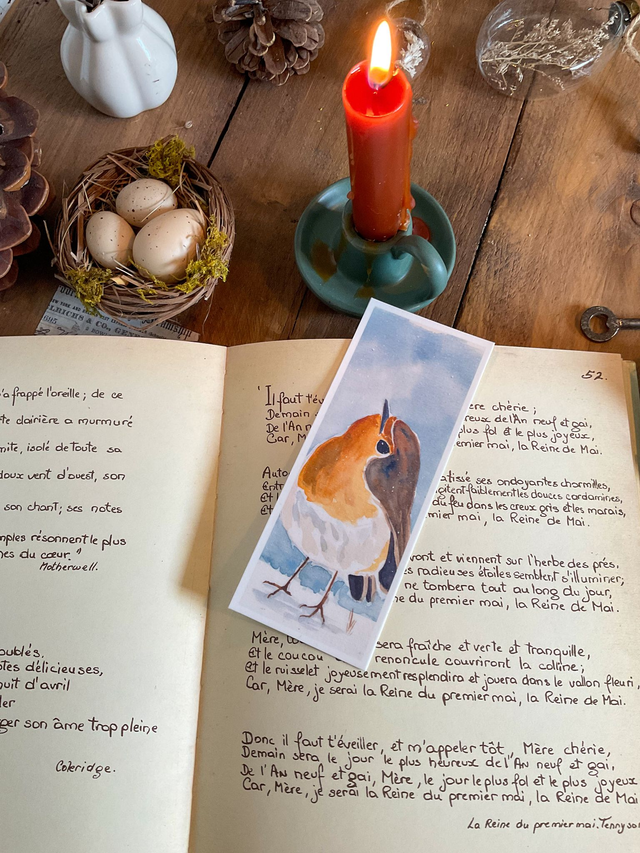 'a frappé l'oreille; de ce
te clairière a murmuré
mite, isolé de toute sa
doux vent d'ouest, son
son chant; ses notes
mples résonnent le plus
nes du cœur."
Motherwell.
oublés,
otes délicieuses,
nuit d'avril
ler
ger son âme trop pleine
Coleridge.
52.
"Il faut t'év ère chérie;
Demain reux de l'An neuf et gai,
De l'An plus fol et le plus joyeux,
Car, M emier mai, la Reine de Mai.
Auto atissé ses ondoyantes charmilles,
Entr citent faiblement les douces cardamines,
Et l du feu dans les creux gris et les marais,
mier mai, la Reine de Mai.
vont et viennent sur l'herbe des prés,
s radieuses étoiles semblent s'illuminer;
ne tombera tout au long du jour,
e du premier mai, la Reine de Mai.
Mère, sera fraîche et verte et tranquille,
Et le coucou renoncule couvriront la colline;
Et le ruisselet joyeusement resplendira et jouera dans le vallon fleuri,
Car, Mère, je serai la Reine du premier mai, la Reine de Mai.
Donc il faut t'éveiller, et m'appeler tôt, Mère chérie,
Demain sera le jour le plus heureux de l'An neuf et gai,
De l'An neuf et gai, Mère, le jour le plus fol et le plus joyeux
Car, Mère, je serai la Reine du premier mai, la Reine de Mai
La Reine du premier mai. Tennyson